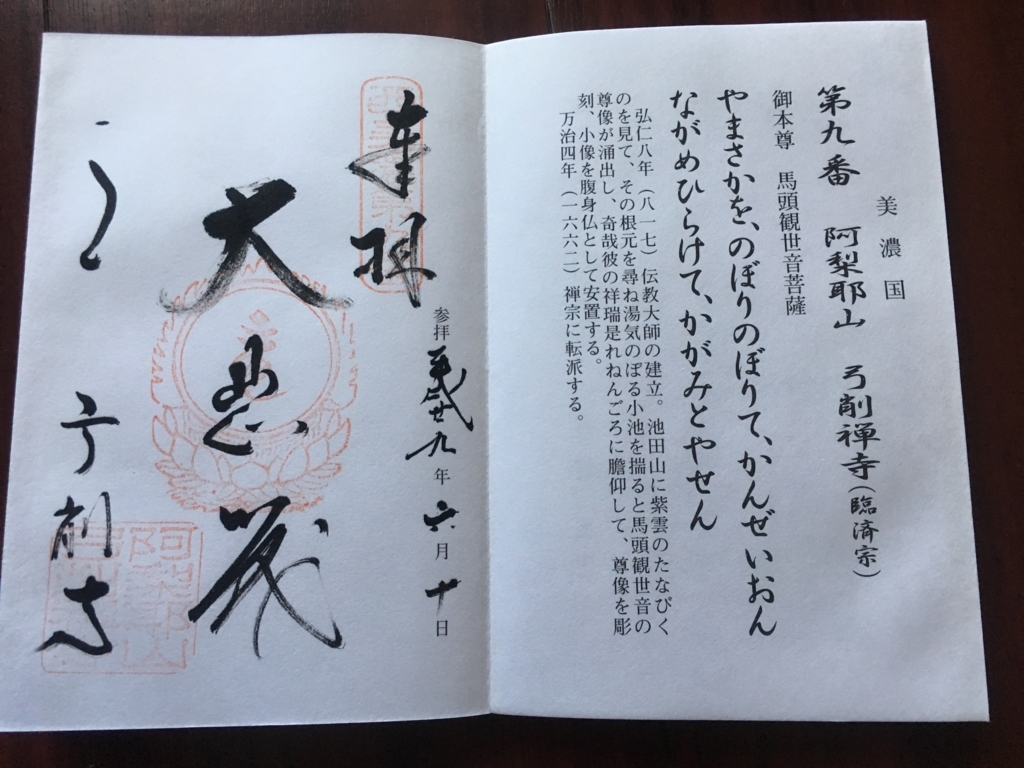 美濃国
第九番 阿梨耶山 弓削禅寺(臨済宗)
御本尊 馬頭観世音菩薩
やまさかを、のぼりのぼりて、かんぜいおん
ながめひらけて、かがみとやせん
弘仁八年(八一七)伝教大師の建立。池田山に紫雲のたなびく
のを見て、その根元を尋ね湯気のぼる小池を揣ると馬頭観世音の
尊像が涌出し、奇哉彼の祥瑞是れねんごろに膽仰して、尊像を彫
刻、小像を腹身仏として安置する。
万治四年(一六六二)禅宗に転派する。
奉拝
参拝 平成廿九年六月十日
大悲
弓削寺